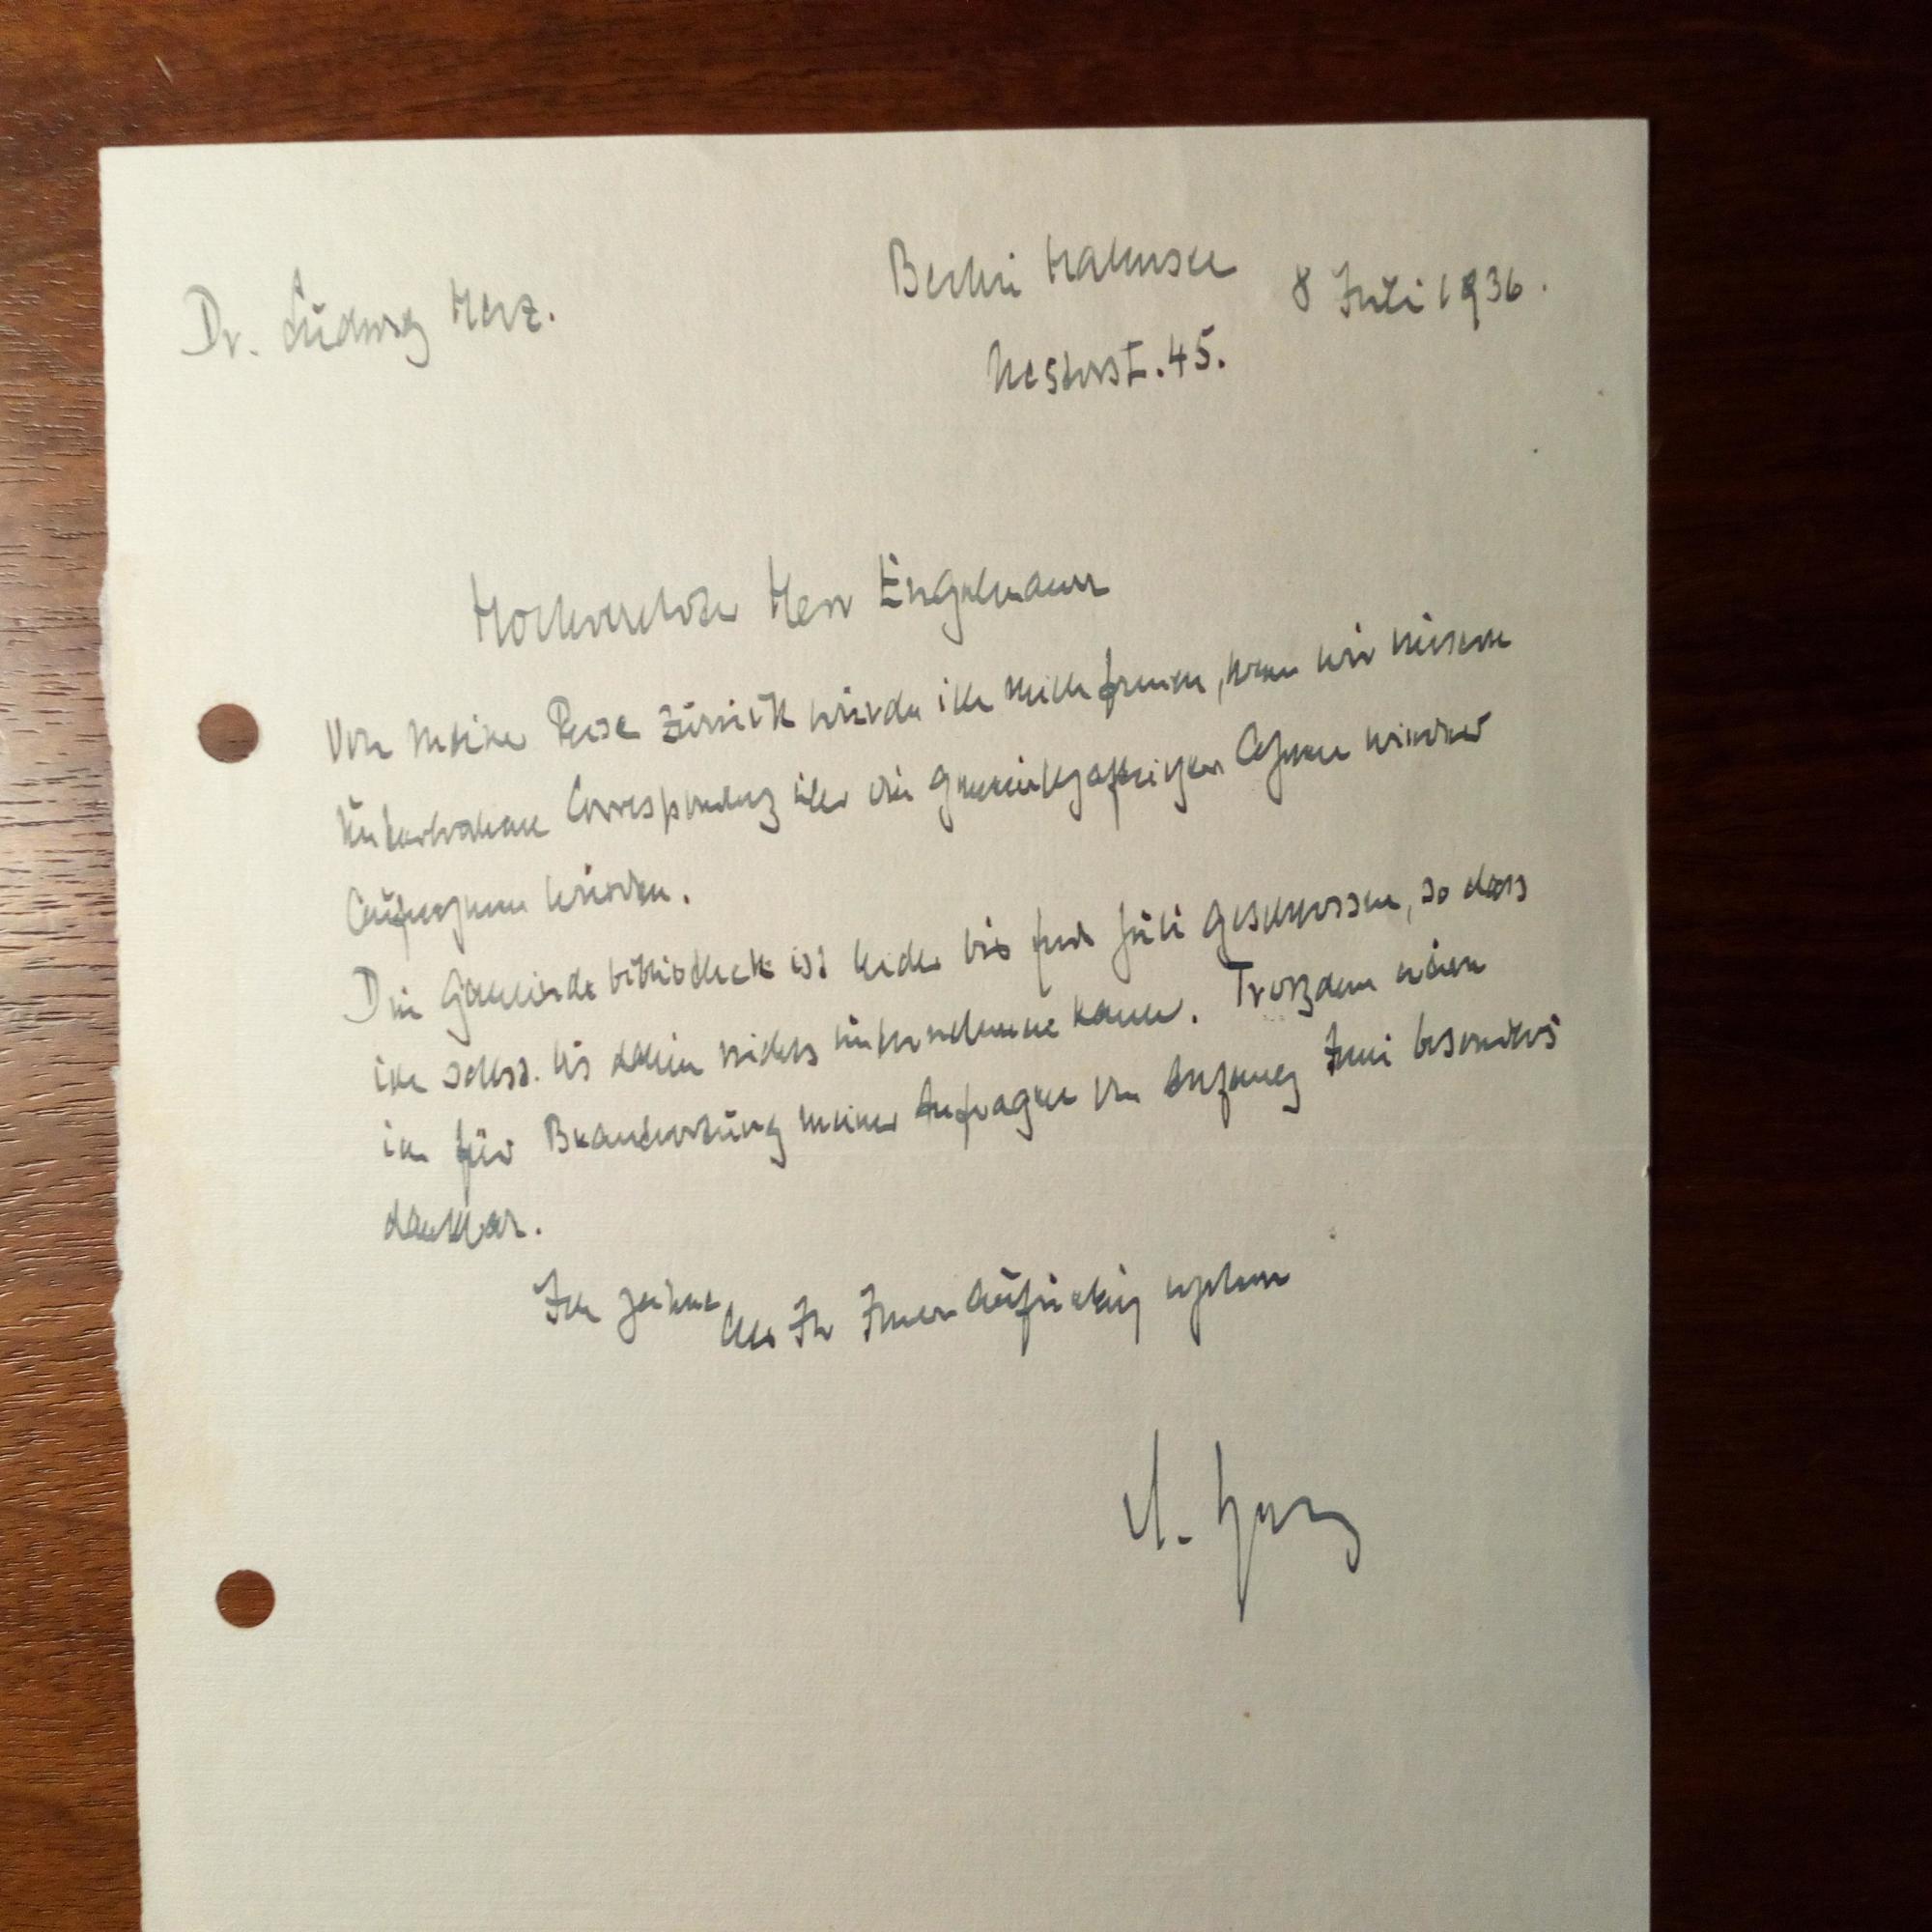 Dr. Ludwig Herz.
Berlin Halensee 8 Juli 1936.
Nestorst. 45.
Hochverehrter Herr Engelmann
Von meiner Reise zurück würde ich mich freuen, wenn wir unsere
unterbrochene Correspondenz über die gemeinschaftlichen Ahnen wieder
aufnehmen würden.
Die Gemeindebibliothek ist leider bis Ende Juli geschlossen, so dass
ich selbst bis dahin nichts unternehmen kann. Trotzdem wäre
ich für Beantwortung meiner Anfragen von Anfang Juni besonders
dankbar.
Ich zeichne als Ihr Ihnen aufrichtig ergebener
L. Herz